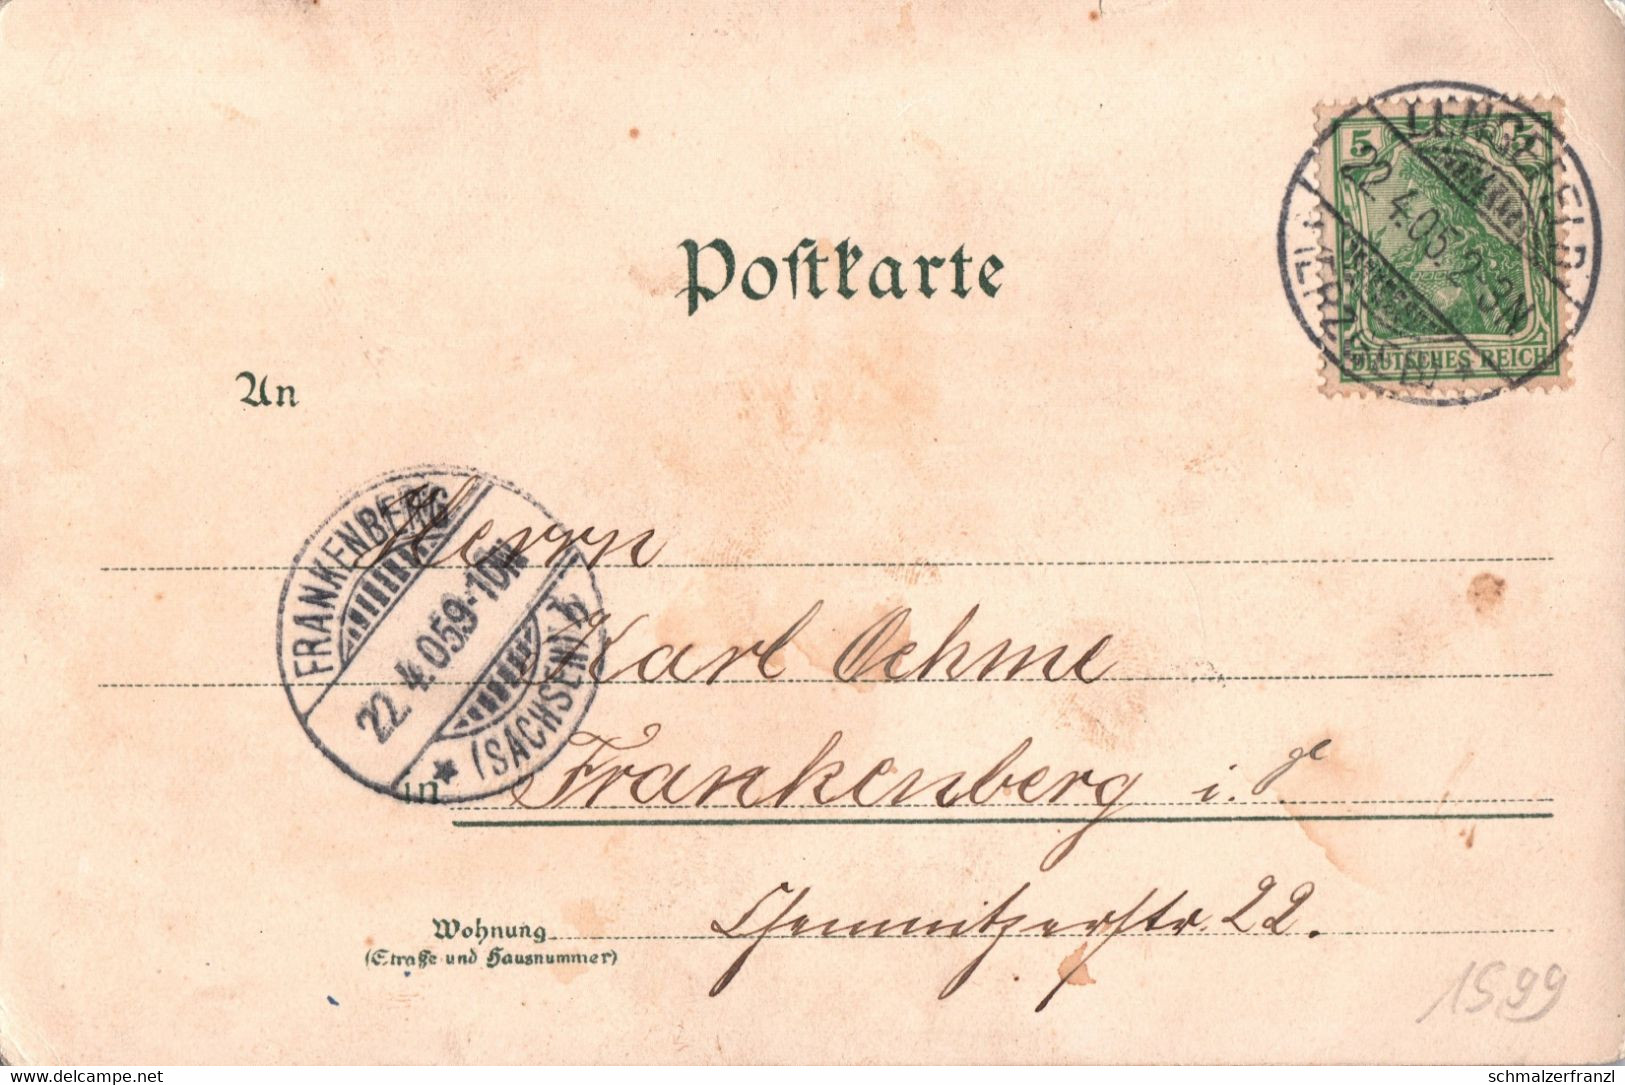 Postkarte
5
5
LENGEFELD
22.4.05.2-3N
* (ERZGEB.) *
DEUTSCHES REICH
An
FRANKENBERG
22.4.05.9-10N
* (SACHSEN) b
Herrn
Karl Oehme
in Frankenberg i.
Wohnung Chemnitzerstr. 22.
(Straße und Hausnummer)
1599
delcampe.net
schmalzerfranzl